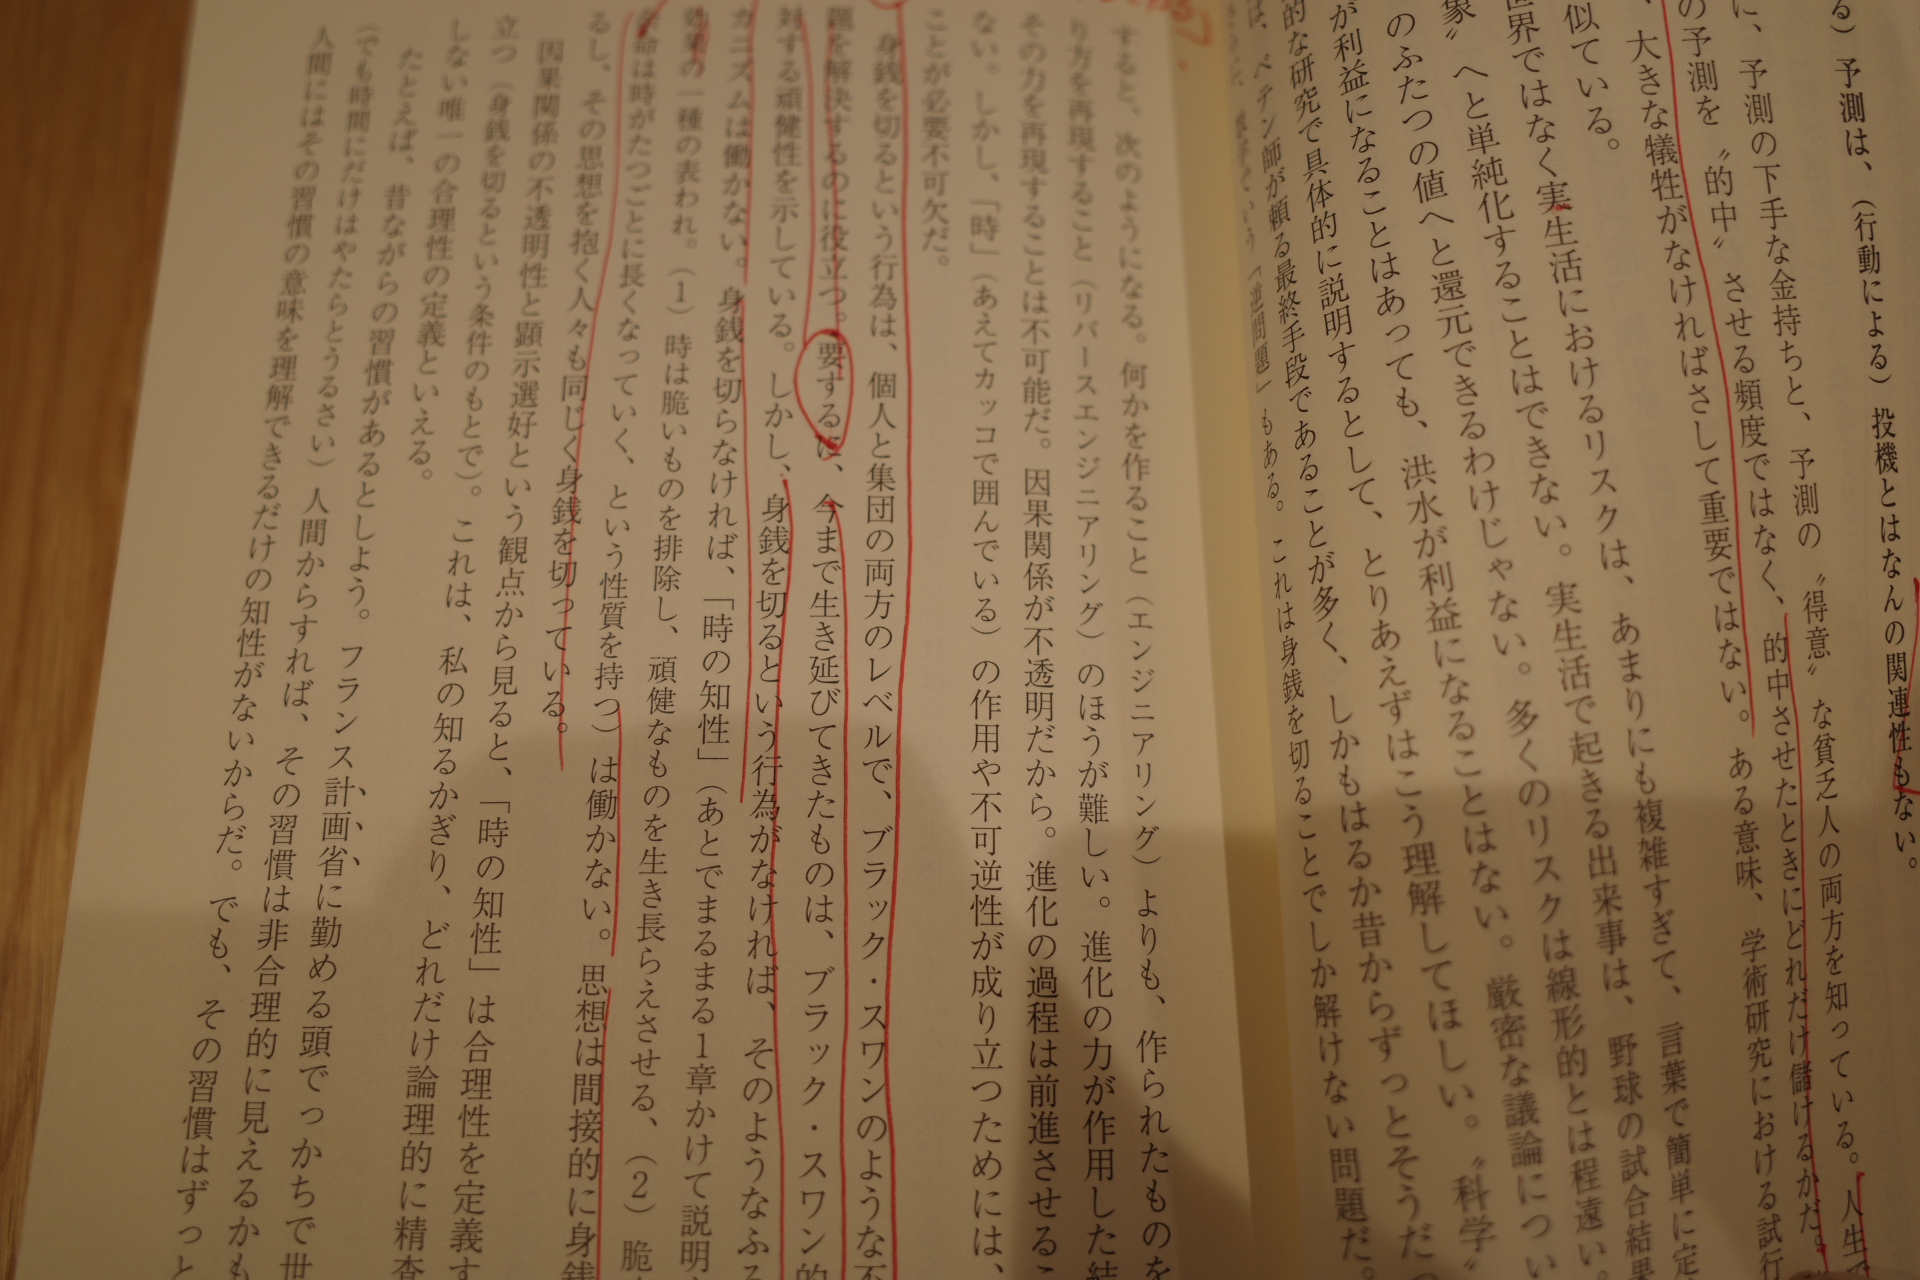 る）予測は、（行動による）投機とはなんの関連性もない。
に、予測の下手な金持ちと、予測の〝得意〟な貧乏人の両方を知っている。人生で
の予測を〝的中〟させる頻度ではなく、的中させたときにどれだけ儲けるかだ。
、大きな犠牲がなければさして重要ではない。ある意味、学術研究における試行
似ている。
世界ではなく実生活におけるリスクは、あまりにも複雑すぎて、言葉で簡単に定
象〟へと単純化することはできない。実生活で起きる出来事は、野球の試合結果
のふたつの値へと還元できるわけじゃない。多くのリスクは線形的とは程遠い。
が利益になることはあっても、洪水が利益になることはない。厳密な議論につい
的な研究で具体的に説明するとして、とりあえずはこう理解してほしい。〝科学〟
は、ペテン師が頼る最終手段であることが多く、しかもはるか昔からずっとそうだっ
「逆問題」もある。これは身銭を切ることでしか解けない問題だ。
すると、次のようになる。何かを作ること（エンジニアリング）よりも、作られたものを
り方を再現すること（リバースエンジニアリング）のほうが難しい。進化の力が作用した結
その力を再現することは不可能だ。因果関係が不透明だから。進化の過程は前進させるこ
ない。しかし、「時」（あえてカッコで囲んでいる）の作用や不可逆性が成り立つためには、
ことが必要不可欠だ。
身銭を切るという行為は、個人と集団の両方のレベルで、ブラック・スワンのような不
題を解決するのに役立つ。要するに、今まで生き延びてきたものは、ブラック・スワン的
対する頑健性を示している。しかし、身銭を切るという行為がなければ、そのようなふる
カニズムは働かない。身銭を切らなければ、「時の知性」（あとでまるまる1章かけて説明
効果の一種の表われ。（1）時は脆いものを排除し、頑健なものを生き長らえさせる、（2）脆
余命は時がたつごとに長くなっていく、という性質を持つ）は働かない。思想は間接的に身銭
るし、その思想を抱く人々も同じく身銭を切っている。
因果関係の不透明性と顕示選好という観点から見ると、「時の知性」は合理性を定義す
立つ（身銭を切るという条件のもとで）。これは、私の知るかぎり、どれだけ論理的に精査
しない唯一の合理性の定義といえる。
たとえば、昔ながらの習慣があるとしよう。フランス計画省に勤める頭でっかちで世
（でも時間にだけはやたらとうるさい）人間からすれば、その習慣は非合理的に見えるかも
人間にはその習慣の意味を理解できるだけの知性がないからだ。でも、その習慣はずっと